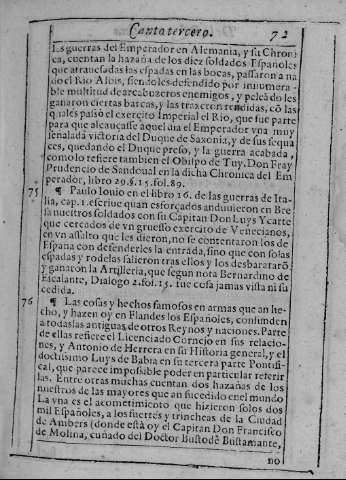 Canto tercero. 72
las guerras del Emperador en Alemania, y su Chroni
ca, cuentan la hazaña de los diez soldados Españoles
que atrauesadas las espadas en las bocas, passaron a na
do el Rio Albis, siendoles defendido por innumera-
ble multitud de arcabuzeros enemigos, y peleãdo les
ganaron ciertas barcas, y las traxeron rendidas, cõ las
quales passò el exercito Imperial el Rio, que fue parte
para que alcançasse aquel dia el Emperador vna muy
señalada victoria del Duque de Saxonia, y de sus sequa
ces, quedando el Duque preso, y la guerra acabada,
como lo refiere tambien el Obispo de Tuy. Don Fray
Prudencio de Sandoual en la dicha Chronica del Em
perador, libro 29. §. 15. fol. 89.
75 ¶ Paulo Iouio en el libro 26. de las guerras de Ita-
lia, cap. 1. escriue quan esforçados anduuieron en Bre
sa nuestros soldados con su Capitan Don Luys Ycarte
que cercados de vn gruesso exercito de Venecianos,
en vn assalto que les dieron, no se contentaron los de
España con defenderles la entrada, sino que con solas
espadas y rodelas salieron tras ellos y los desbaratarõ
y ganaron la Artilleria, que segun nota Bernardino de
Escalante, Dialogo 2. fol. 15. fue cosa jamas vista ni su
cedida.
76 ¶ Las cosas y hechos famosos en armas que an he-
cho, y hazen oy en Flandes los Españoles, confunden
a todas las antiguas de otros Reynos y naciones. Parte
de ellas refiere el Licenciado Cornejo en sus relacio-
nes, y Antonio de Herrera en su Historia general, y el
doctissimo Luys de Babia en su tercera parte Pontifi-
cal, que parece impossible poder en particular referir
las. Entre otras muchas cuentan dos hazañas de los
nuestros de las mayores que an sucedido en el mundo
La vna es el acometimiento que hizieron solos dos
mil Españoles, a los fuertes y trincheas de la Ciudad
de Ambers (donde està oy el Capitan Don Francisco
de Molina, cuñado del Doctor Bustodè Bustamante,
no